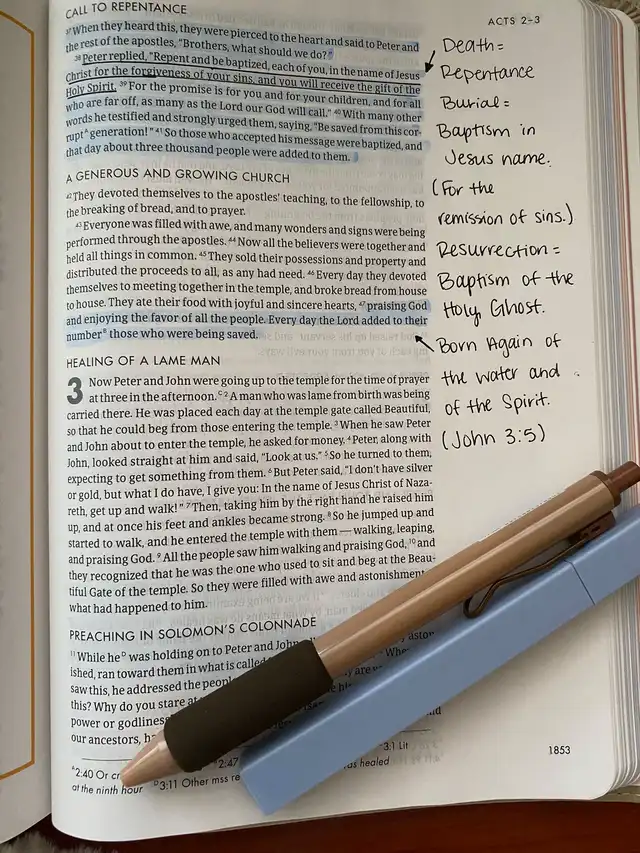 CALL TO REPENTANCE
ACTS 2–3
37 When they heard this, they were pierced to the heart and said to Peter and
the rest of the apostles, “Brothers, what should we do?”
38 Peter replied, “Repent and be baptized, each of you, in the name of Jesus
Christ for the forgiveness of your sins, and you will receive the gift of the
Holy Spirit. 39 For the promise is for you and for your children, and for all
who are far off, as many as the Lord our God will call.” 40 With many other
words he testified and strongly urged them, saying, “Be saved from this cor-
ruptᴬ generation!” 41 So those who accepted his message were baptized, and
that day about three thousand people were added to them.
A GENEROUS AND GROWING CHURCH
42 They devoted themselves to the apostles’ teaching, to the fellowship, to
the breaking of bread, and to prayer.
43 Everyone was filled with awe, and many wonders and signs were being
performed through the apostles. 44 Now all the believers were together and
held all things in common. 45 They sold their possessions and property and
distributed the proceeds to all, as any had need. 46 Every day they devoted
themselves to meeting together in the temple, and broke bread from house
to house. They ate their food with joyful and sincere hearts, 47 praising God
and enjoying the favor of all the people. Every day the Lord added to their
numberᴮ those who were being saved.
HEALING OF A LAME MAN
3 Now Peter and John were going up to the temple for the time of prayer
at three in the afternoon.ᶜ 2 A man who was lame from birth was being
carried there. He was placed each day at the temple gate called Beautiful,
so that he could beg from those entering the temple. 3 When he saw Peter
and John about to enter the temple, he asked for money. 4 Peter, along with
John, looked straight at him and said, “Look at us.” 5 So he turned to them,
expecting to get something from them. 6 But Peter said, “I don’t have silver
or gold, but what I do have, I give you: In the name of Jesus Christ of Naza-
reth, get up and walk!” 7 Then, taking him by the right hand he raised him
up, and at once his feet and ankles became strong. 8 So he jumped up and
started to walk, and he entered the temple with them — walking, leaping,
and praising God. 9 All the people saw him walking and praising God, 10 and
they recognized that he was the one who used to sit and beg at the Beau-
tiful Gate of the temple. So they were filled with awe and astonishment
what had happened to him.
PREACHING IN SOLOMON’S COLONNADE
11 While heᴰ was holding on to Peter and John
ished, ran toward them in what is called
saw this, he addressed the people
this? Why do you stare at
power or godliness
our ancestors,
ᴬ2:40 Or
2:47
3:1 Lit
at the ninth hour
ᴰ3:11 Other mss
healed
1853
Death =
Repentance
Burial =
Baptism in
Jesus name.
(For the
remission of sins.)
Resurrection =
Baptism of the
Holy Ghost.
Born Again of
the water and
of the Spirit.
(John 3:5)